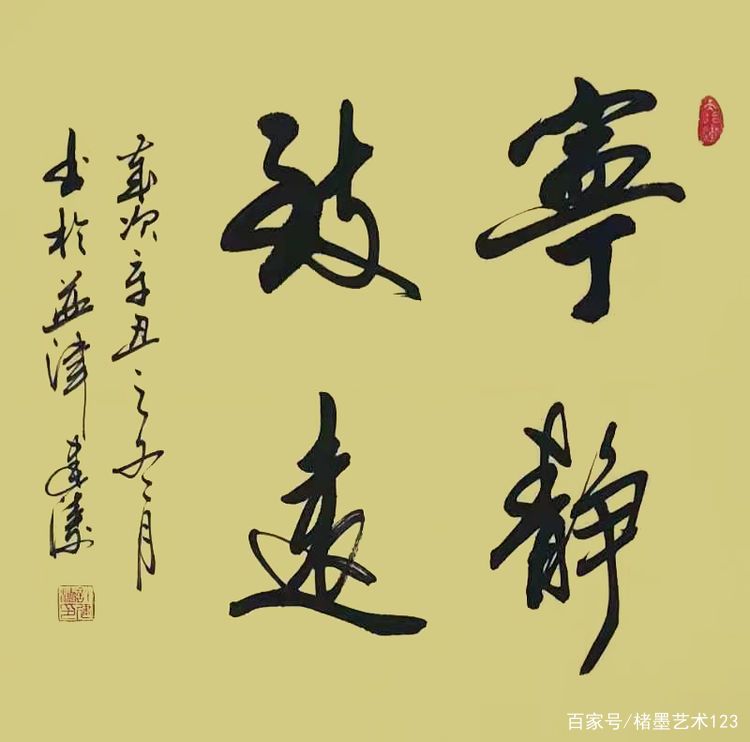 寧靜
致遠
歲次辛丑之冬月
书於益津
百家号/楮墨艺术123